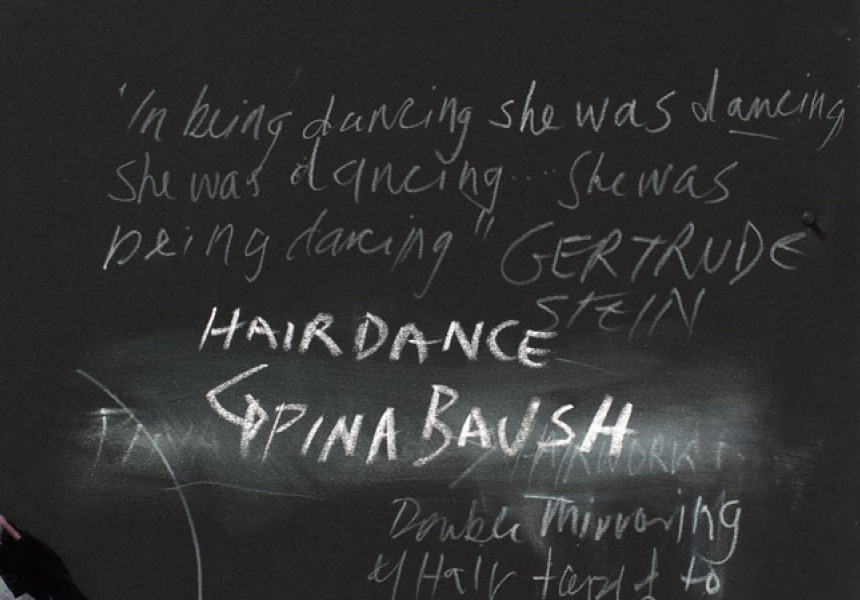 "In being dancing she was dancing
she was dancing.... She was
being dancing" GERTRUDE
STEIN
HAIR DANCE
PINA BAUSH
Double Mirroring
Hair to